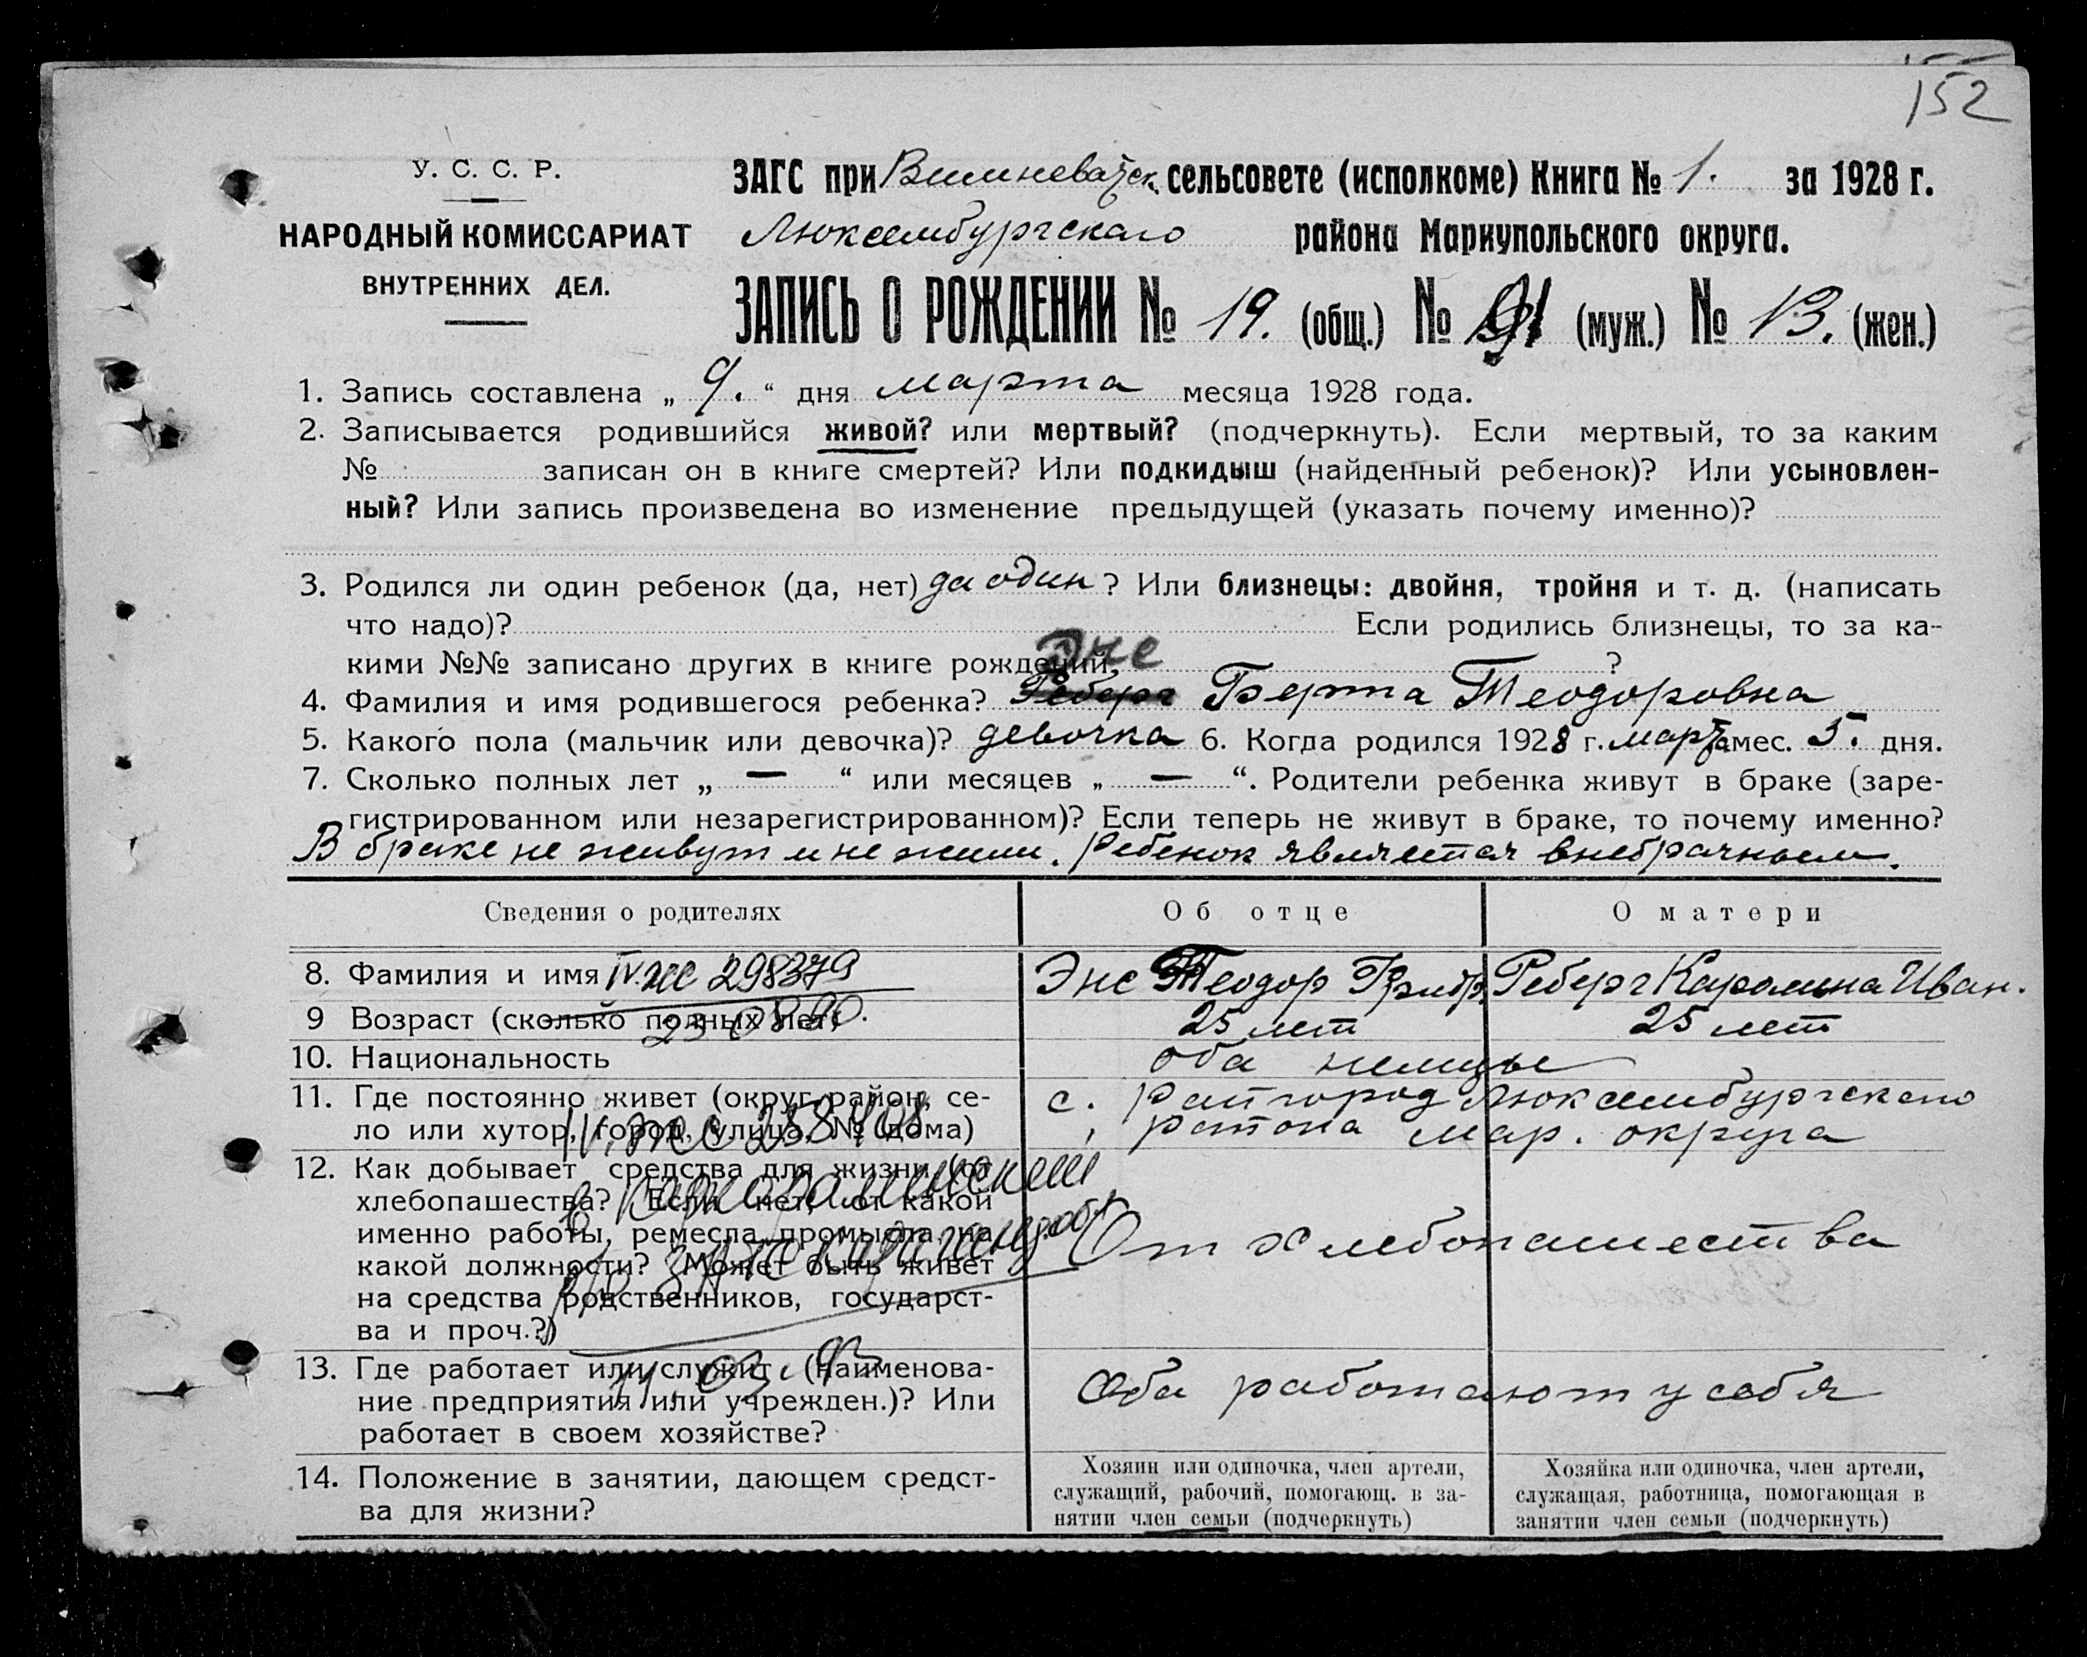 152
У. С. С. Р.
НАРОДНЫЙ КОМИССАРИАТ
ВНУТРЕННИХ ДЕЛ.
ЗАГС при Вишневатск. сельсовете (исполкоме) Книга № 1. за 1928 г.
Люксембургского района Мариупольского округа.
ЗАПИСЬ О РОЖДЕНИИ № 19. (общ.) № (муж.) № 13. (жен.)
1. Запись составлена „ 9. “ дня марта месяца 1928 года.
2. Записывается родившийся живой? или мертвый? (подчеркнуть). Если мертвый, то за каким
№ записан он в книге смертей? Или подкидыш (найденный ребенок)? Или усыновлен-
ный? Или запись произведена во изменение предыдущей (указать почему именно)?
3. Родился ли один ребенок (да, нет) да один ? Или близнецы: двойня, тройня и т. д. (написать
что надо)? Если родились близнецы, то за ка-
кими №№ записано других в книге рождений, ?
Энс
4. Фамилия и имя родившегося ребенка? Реберг Берта Теодоровна
5. Какого пола (мальчик или девочка)? девочка 6. Когда родился 1928 г. марта мес. 5. дня.
7. Сколько полных лет „ — “ или месяцев „ — “. Родители ребенка живут в браке (заре-
гистрированном или незарегистрированном)? Если теперь не живут в браке, то почему именно?
В браке не живут и не жили. Ребенок является внебрачным.
Сведения о родителях Об отце О матери
8. Фамилия и имя IV.ЖС 298379 Энс Теодор Реберг Каролина Иван.
9 Возраст (сколько полных лет) 25 лет 25 лет
10. Национальность оба немцы
11. Где постоянно живет (округ, район, се-
ло или хутор, город, улица, № дома)
с. Райгород Люксембургского
района Мар. округа
12. Как добывает средства для жизни (от
хлебопашества? Если нет, от какой
именно работы, ремесла, промысла, на
какой должности? Может быть живет
на средства родственников, государст-
ва и проч.?)
От хлебопашества
13. Где работает или служит (наименова-
ние предприятия или учрежден.)? Или
работает в своем хозяйстве?
11.03.93
Оба работают у себя
14. Положение в занятии, дающем средст-
ва для жизни?
Хозяин или одиночка, член артели,
служащий, рабочий, помогающ. в за-
нятии член семьи (подчеркнуть)
Хозяйка или одиночка, член артели,
служащая, работница, помогающая в
занятии член семьи (подчеркнуть)